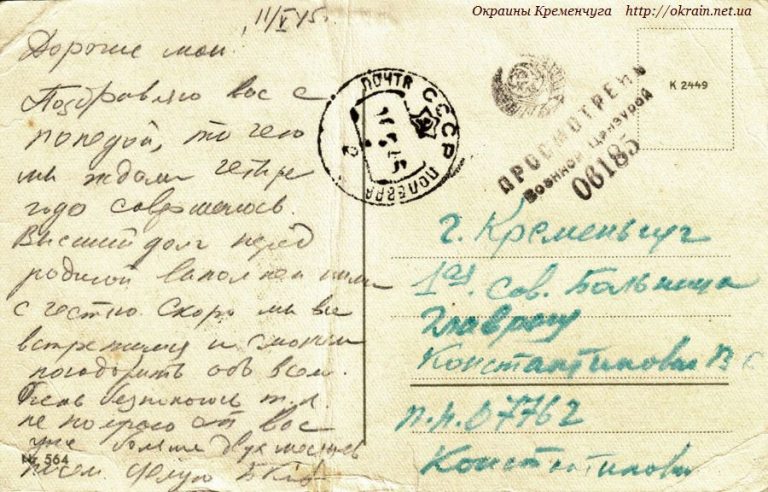 Окраины Кременчуга http://okrain.net.ua
11/V 45.
Дорогие мои!
Поздравляю вас с
победой, то чего
мы ждали четыре
года совершилось.
Высший долг перед
родиной выполнен нами
с честью. Скоро мы все
встретимся и сможем
поговорить обо всем.
не получаю от вас
уже больше двух месяцев
писем. Целую
№ 564
ПОЧТА СССР
ПОЛЕВАЯ
К 2449
ПРОСМОТРЕНО
Военной Цензурой
06185
г. Кременьчуг
1ая сов. Больница
Главврачу
п.п. 07762